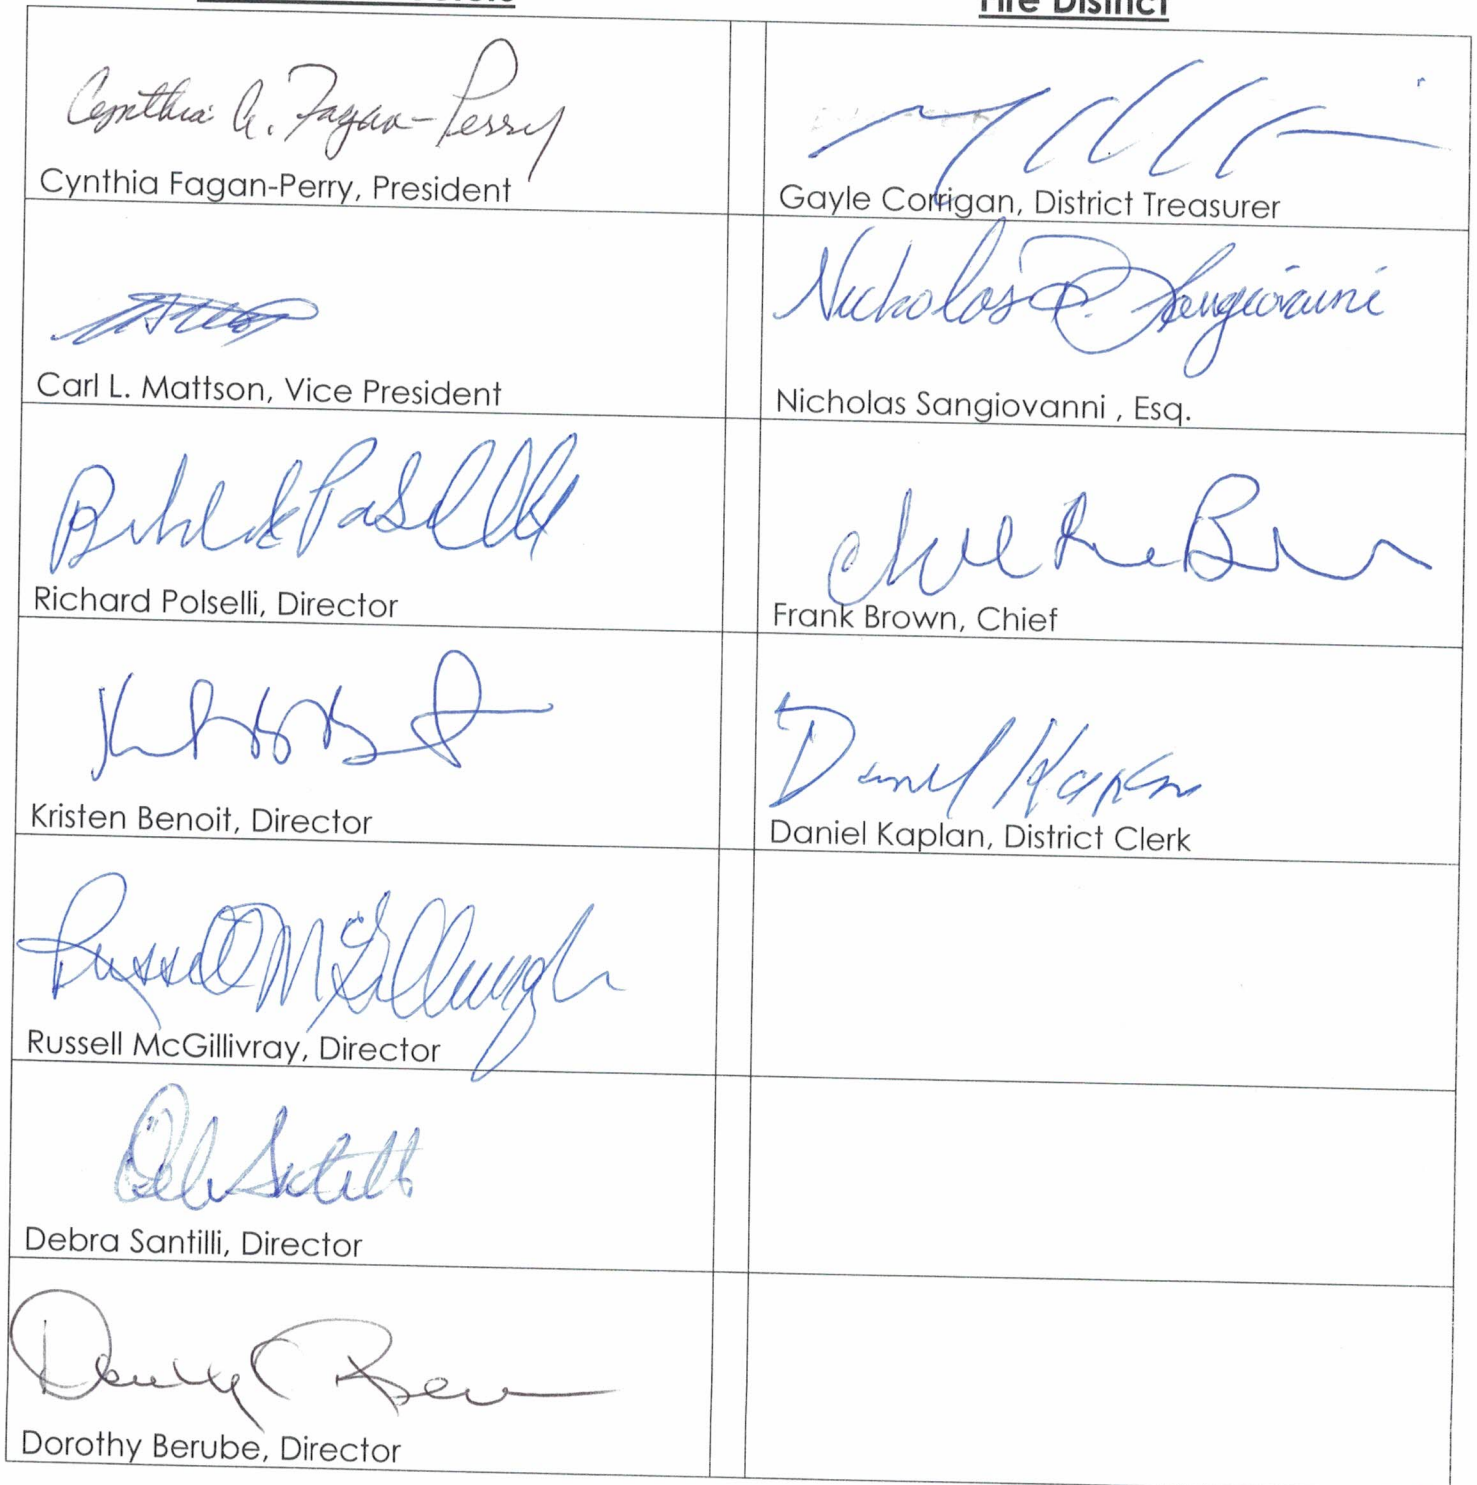 Fire District
Cynthia A. Fagan-Perry
Cynthia Fagan-Perry, President
Gayle Corrigan, District Treasurer
Carl L. Mattson, Vice President
Nicholas Sangiovanni
Nicholas Sangiovanni , Esq.
Richard Polselli
Richard Polselli, Director
Frank Brown, Chief
Kristen Benoit, Director
Daniel Kaplan
Daniel Kaplan, District Clerk
Russell McGillivray
Russell McGillivray, Director
Deb Santilli
Debra Santilli, Director
Dorothy Berube, Director